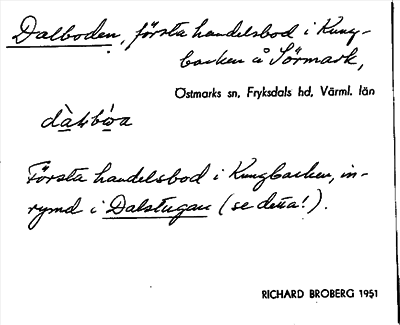 Dalboden, första handelsbod i Kung-
backen å Sörmark,
Östmarks sn, Fryksdals hd, Värml. län
Första handelsbod i Kungbacken, in-
rymd i Dalstugan (se detta!).
RICHARD BROBERG 1951